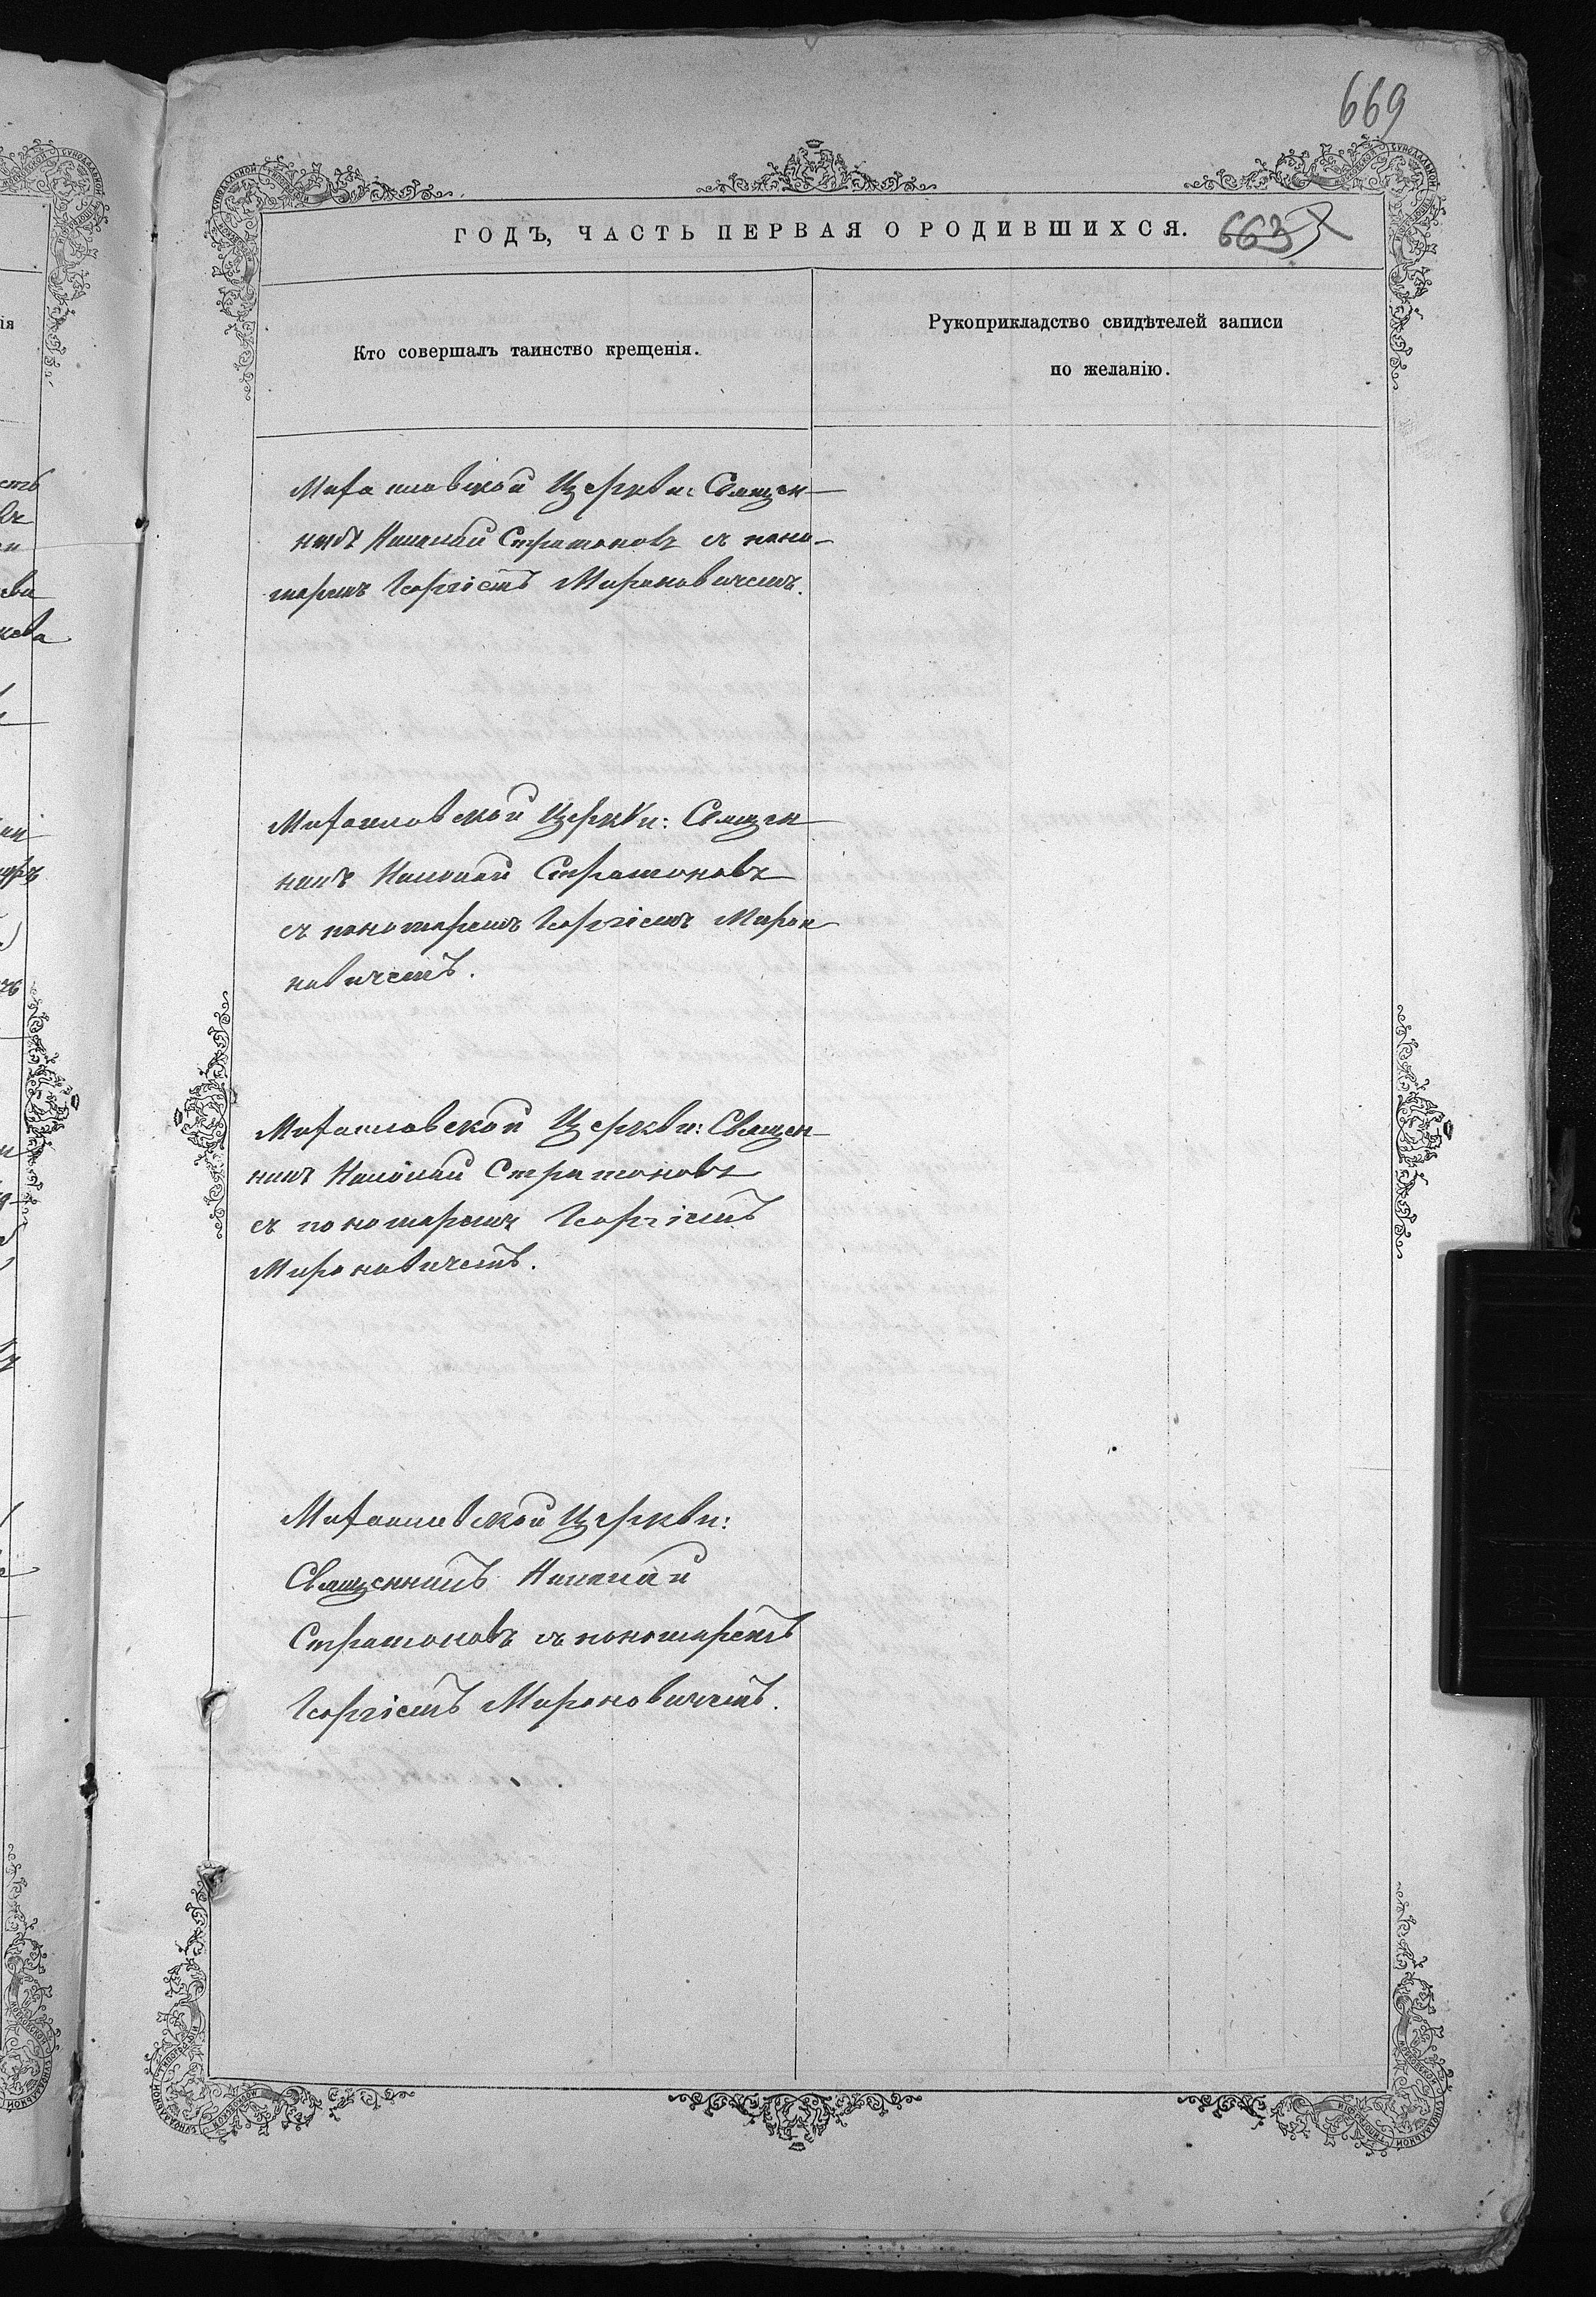 669
ГОДЪ, ЧАСТЬ ПЕРВАЯ О РОДИВШИХСЯ.
663
Кто совершалъ таинство крещенія.
Рукоприкладство свидѣтелей записи
по желанію.
Михаиловской Церкви: Священ-
никъ Николай Стратоновъ съ поно-
маремъ Георгіемъ Мироновичемъ.
Михаиловской Церкви: Священ
никъ Николай Стратоновъ
съ пономаремъ Георгіемъ Миро
новичемъ.
Михаиловской Церкви: Священ-
никъ Николай Стратоновъ
съ пономаремъ Георгіемъ
Мироновичемъ.
Михаиловской Церкви:
Священникъ Николай
Стратоновъ съ пономаремъ
Георгіемъ Мироновичемъ.